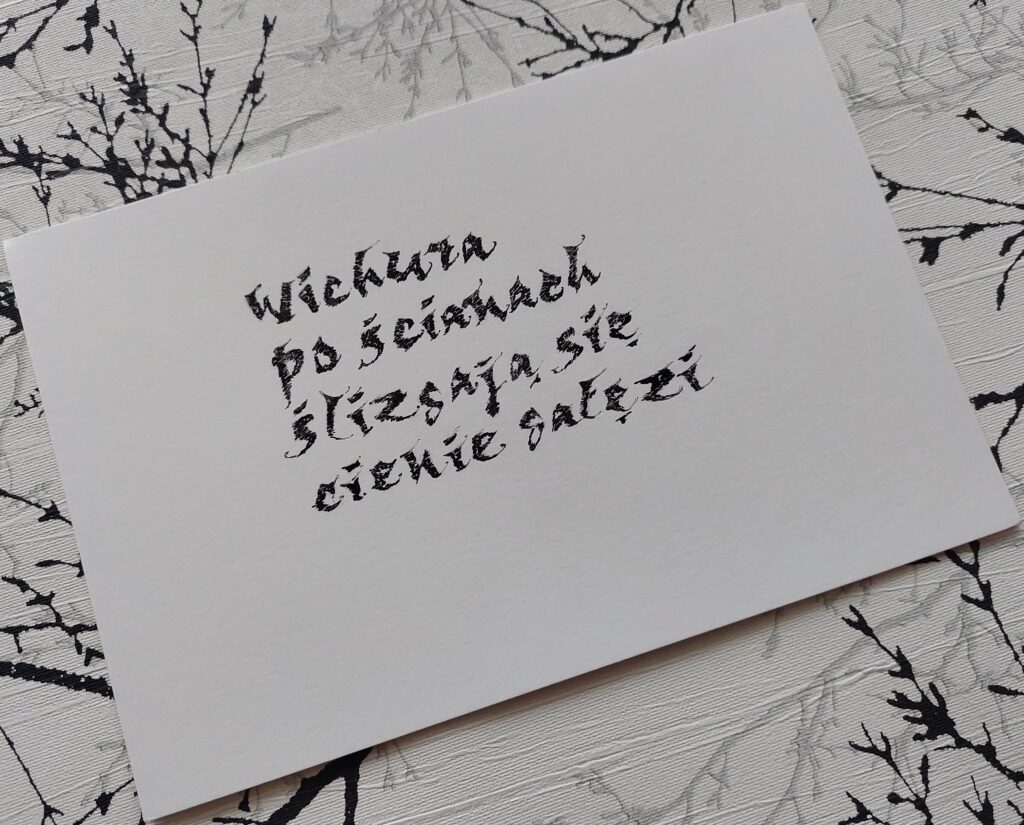 Wichura
po ścianach
ślizgają się
cienie gałęzi